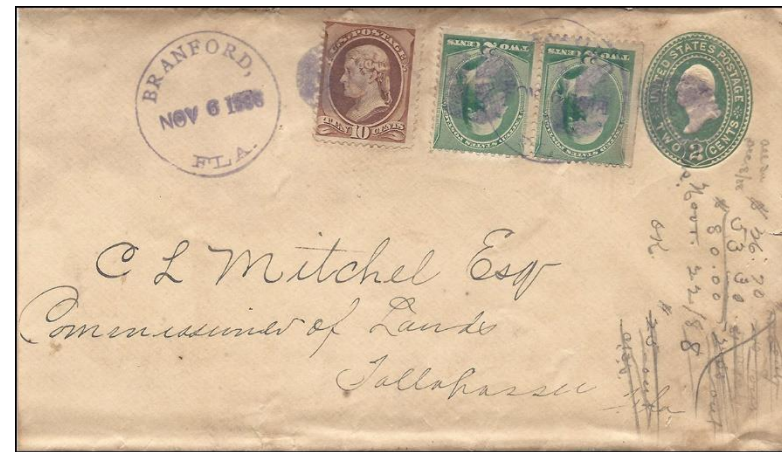 BRANFORD,
NOV 6 1888
FLA.
U.S. POSTAGE
10 CENTS
TWO CENTS
2
TWO CENTS
2
UNITED STATES POSTAGE
TWO 2 CENTS
C L Mitchel Esqr
Commissioner of Lands
Tallahassee
Fla
$26.70
53.30
$80.00
Nov. 22/88
OK